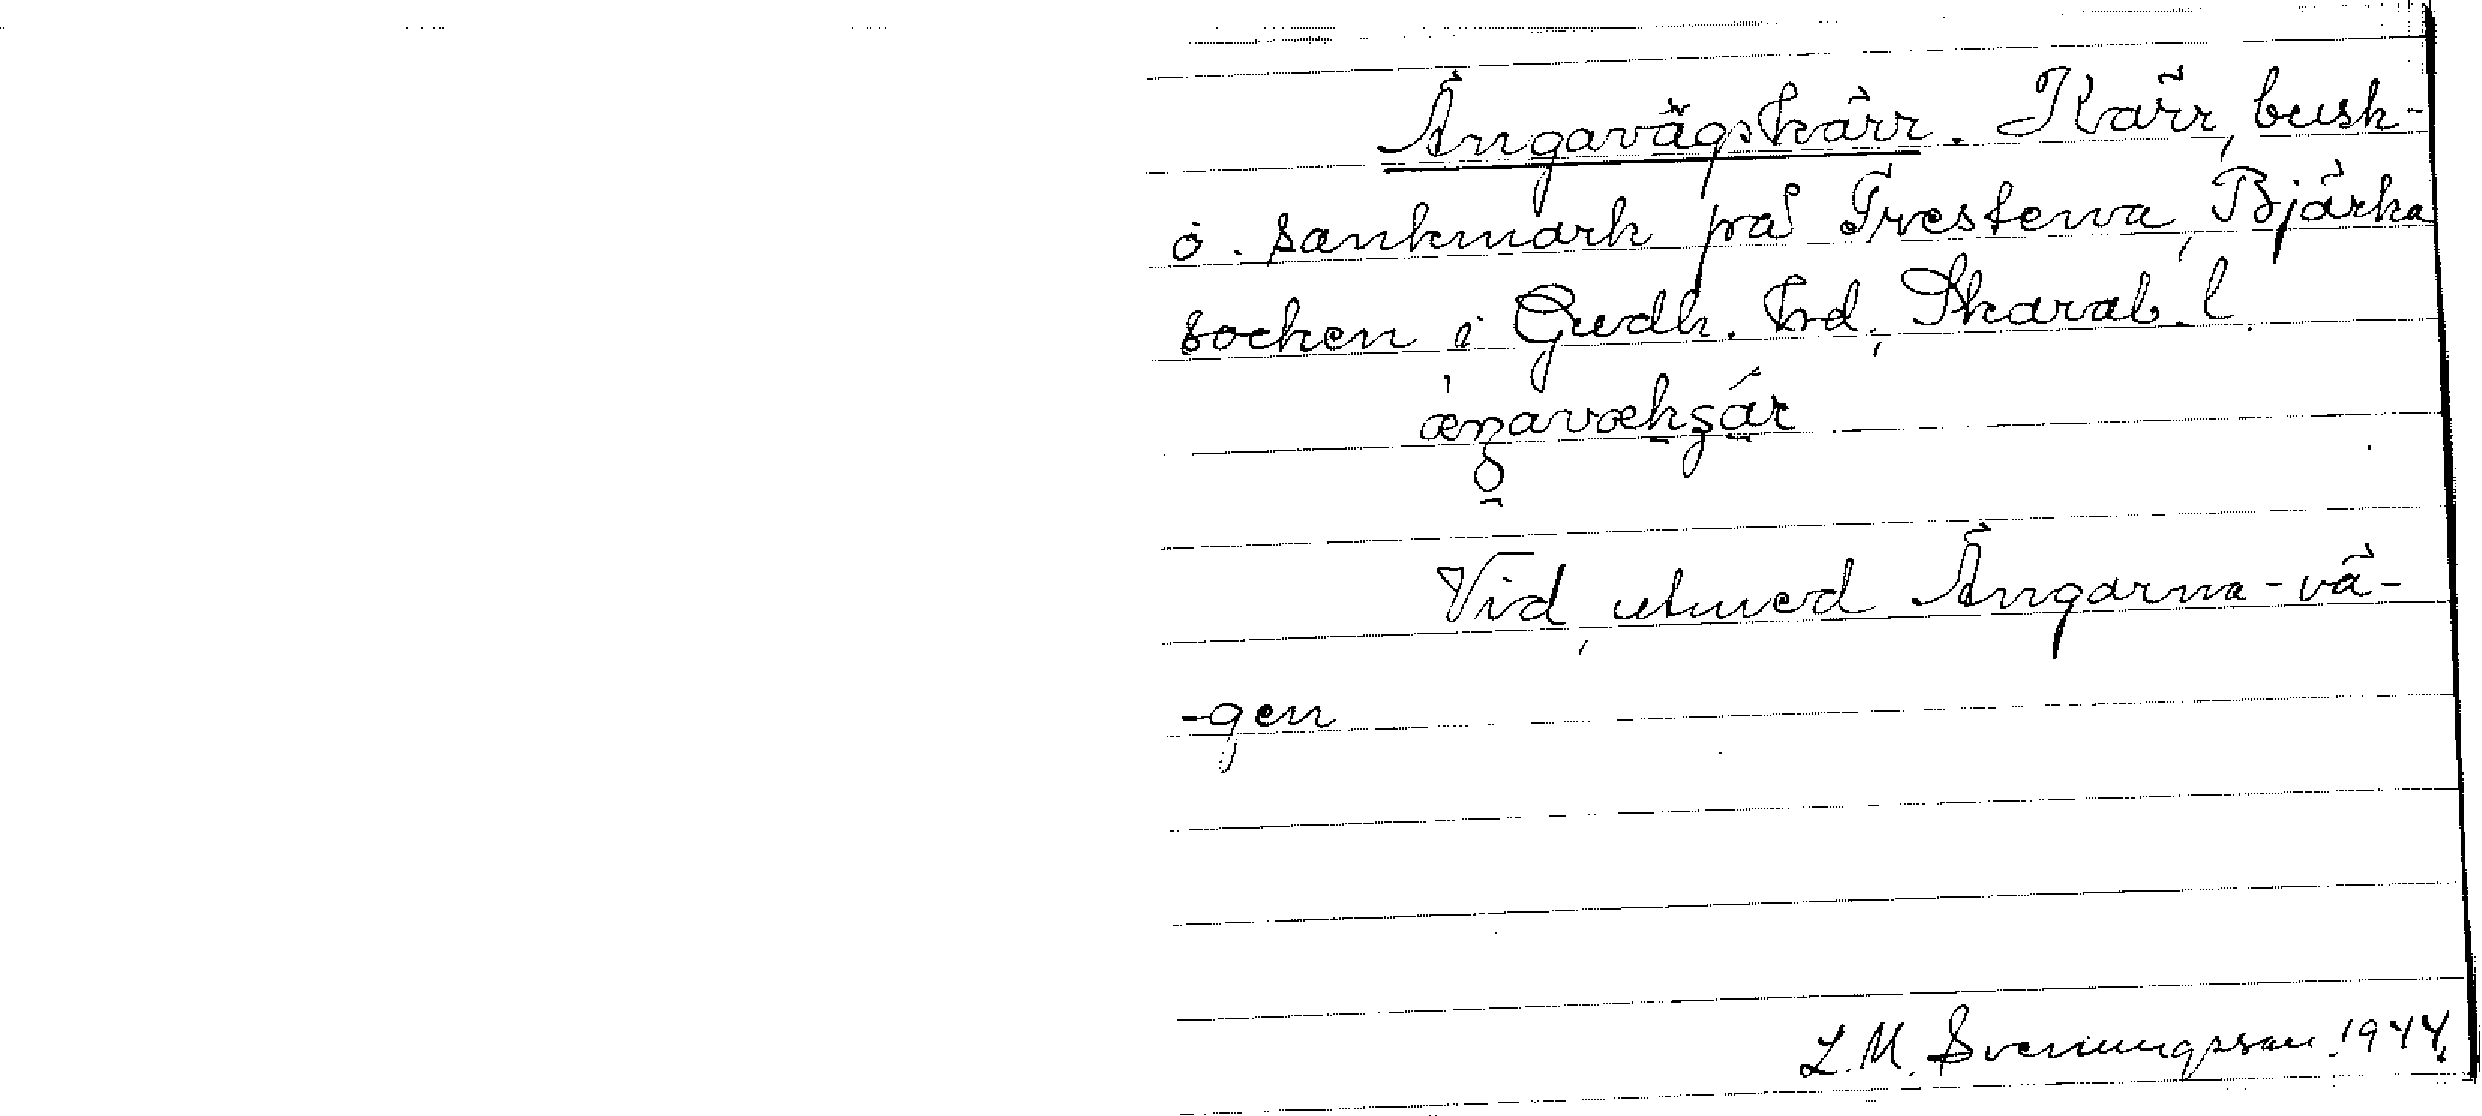 Ängavägskärr. Kärr, busk-
o. sankmark på Trestena, Bjärka
socken i Gudh. hd, Skarab. l.
Vid, utmed Ängarna-vä-
-gen
L. M. Svenungsson 1944.